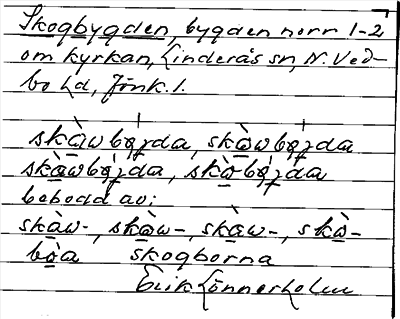 Skogbygden, bygden norr 1-2
om kyrkan, Linderås sn, N. Ved-
bo hd, Jönk. l.
skàwbý̀gda, skàwbý̀gda
skàwbý̀gda, skàbý̀gda
bebodd av:
skàw-, skàw-, skàw-, skà-
bòa skogborna
Erik Lönnerholm